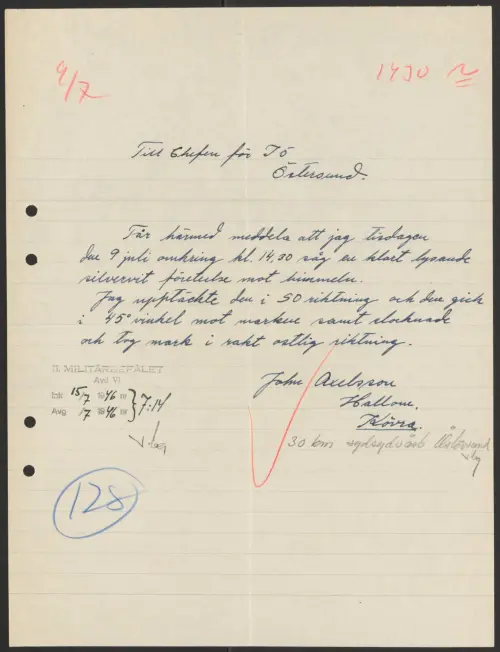 9/7
1430
Till Chefen för I 5
Östersund.
Får härmed meddela att jag tisdagen
den 9 juli omkring kl. 14,30 såg en klart lysande
silvervit företeelse mot himmeln.
Jag upptäckte den i SO riktning och den gick
i 45° vinkel mot marken samt slocknade
och tog mark i rakt ostlig riktning.
John Axelsson
Hallom,
Kövra.
II. MILITÄRBEFÄLET
Avd VI.
Ink 15/7 1946 nr
Avg /7 1946 nr } 7:14
30 km sydsydväst Östersund
128